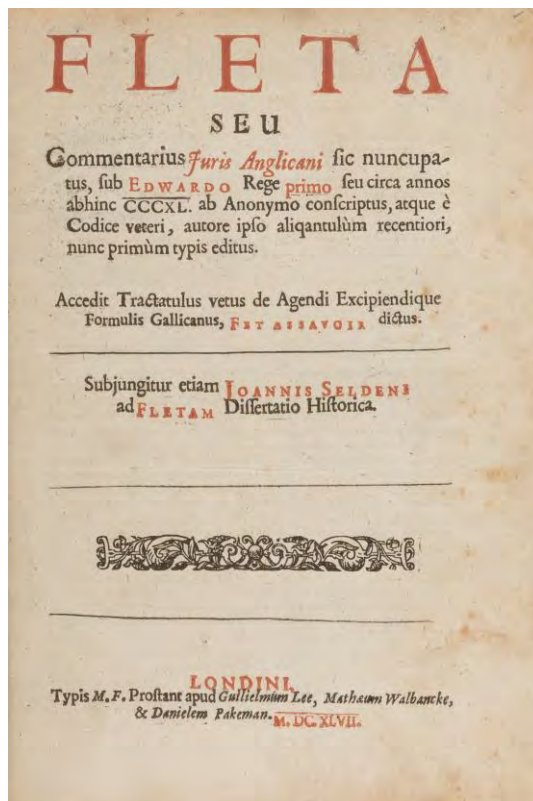 FLETA
SEU
Commentarius Juris Anglicani sic nuncupa-
tus, sub EDWARDO Rege primo seu circa annos
abhinc CCCXL. ab Anonymo conscriptus, atque è
Codice veteri, autore ipso aliqantulùm recentiori,
nunc primùm typis editus.
Accedit Tractatulus vetus de Agendi Excipiendique
Formulis Gallicanus, FET ASSAVOIR dictus.
Subjungitur etiam JOANNIS SELDENI
ad FLETAM Dissertatio Historica.
LONDINI,
Typis M. F. Prostant apud Gulielmum Lee, Mathæum Walbancke,
& Danielem Pakeman. M. DC. XLVII.